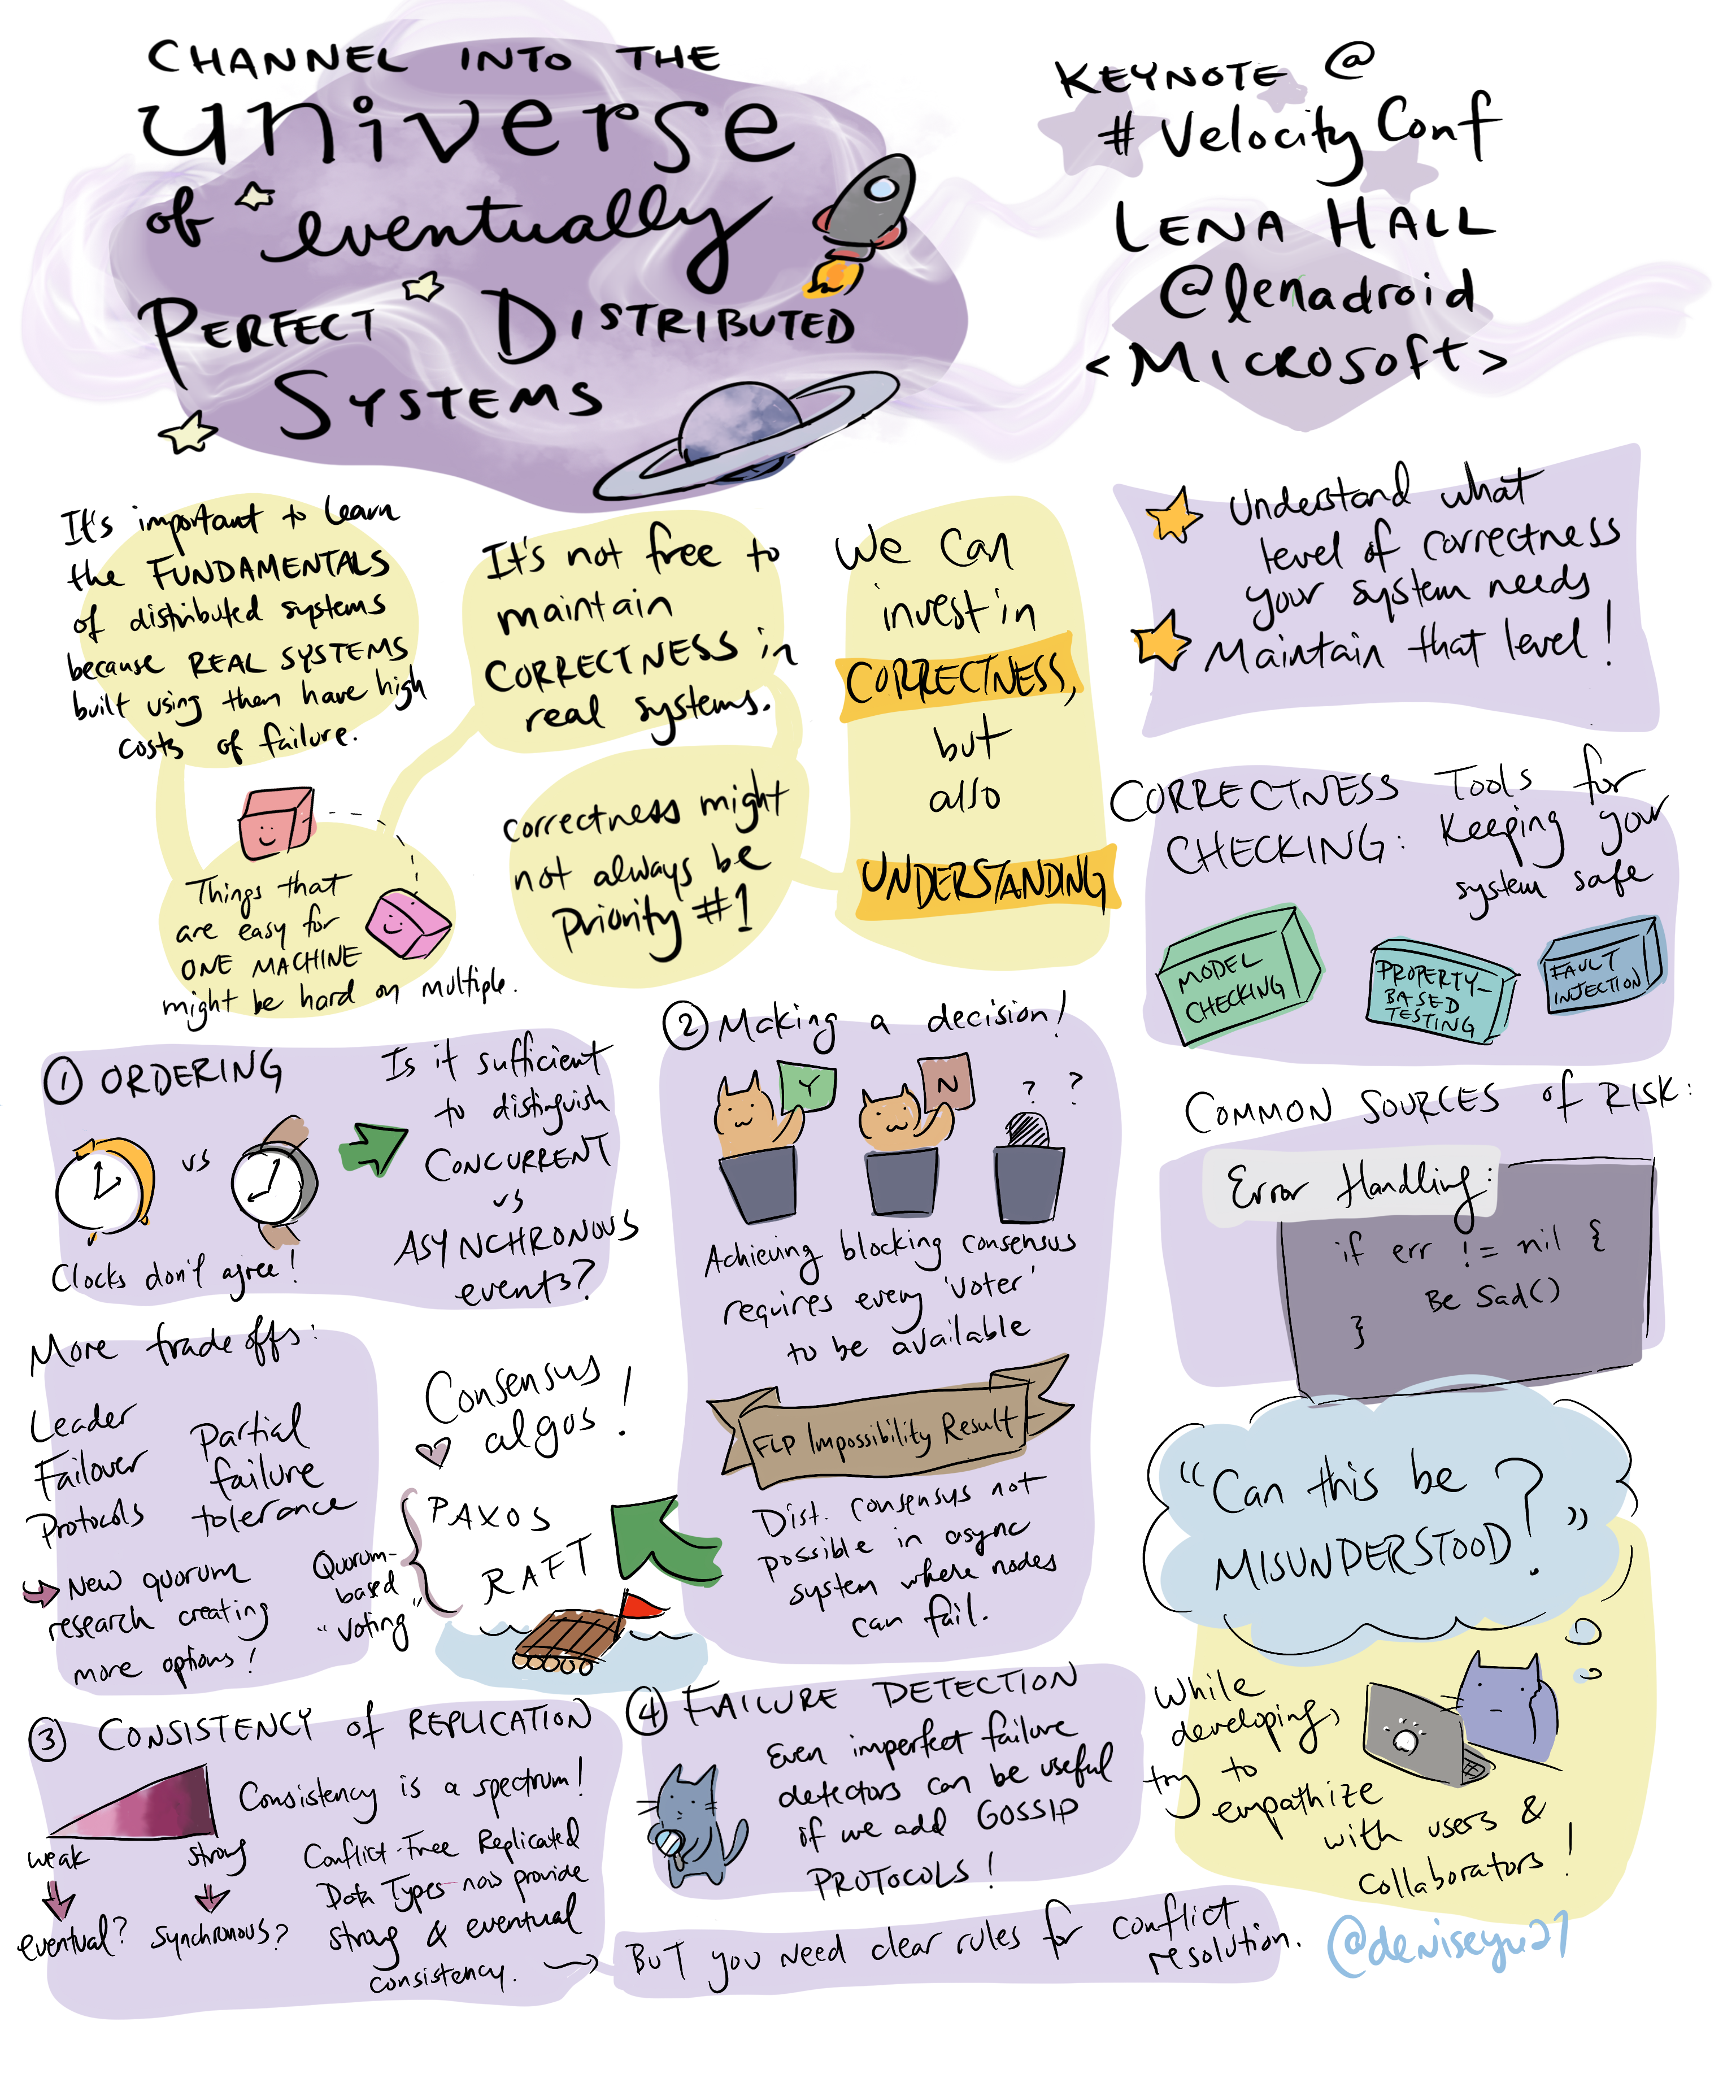 CHANNEL INTO THE
universe
of eventually
PERFECT DISTRIBUTED
SYSTEMS
KEYNOTE @
# Velocity Conf
LENA HALL
@lenadroid
<MICROSOFT>
It's important to learn
the FUNDAMENTALS
of distributed systems
because REAL SYSTEMS
built using them have high
costs of failure.
It's not free to
maintain
CORRECTNESS in
real systems.
We can
invest in
CORRECTNESS,
but
also
UNDERSTANDING
Understand what
level of correctness
your system needs
Maintain that level!
Things that
are easy for
ONE MACHINE
might be hard on multiple.
correctness might
not always be
Priority #1
CORRECTNESS
CHECKING:
Tools for
keeping your
system safe
MODEL
CHECKING
PROPERTY-
BASED
TESTING
FAULT
INJECTION
① ORDERING
vs
Clocks don't agree!
Is it sufficient
to distinguish
CONCURRENT
vs
ASYNCHRONOUS
events?
② Making a decision!
Y
N
? ?
Achieving blocking consensus
requires every 'voter'
to be available
FLP Impossibility Result
Dist. consensus not
possible in async
system where nodes
can fail.
COMMON SOURCES of RISK:
Error Handling:
if err != nil {
Be Sad()
}
More tradeoffs:
Leader
Failover
Protocols
Partial
failure
tolerance
New quorum
research creating
more options!
Consensus
algos!
PAXOS
RAFT
Quorum-
based
"voting"
"Can this be
MISUNDERSTOOD?"
While
developing,
try to
empathize
with users &
collaborators!
③ CONSISTENCY of REPLICATION
Consistency is a spectrum!
weak
strong
eventual?
synchronous?
Conflict-Free Replicated
Data Types now provide
strong & eventual
consistency.
④ FAILURE DETECTION
Even imperfect failure
detectors can be useful
if we add GOSSIP
PROTOCOLS!
BUT you need clear rules for conflict
resolution.
@deniseyu21